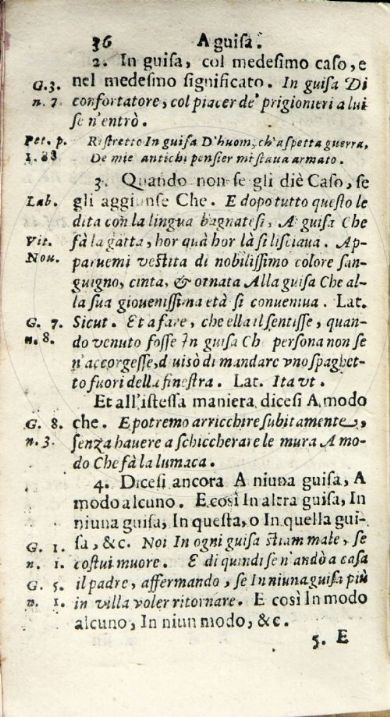 36 A guisa.
2. In guisa, col medesimo caso, e
G. 3. nel medesimo significato. In guisa Di
n. 7. confortatore, col piacer de' prigionieri a lui
se n'entrò.
Pet. p. Ristretto In guisa D'huom, ch'aspetta guerra,
1. 88 De miei antichi pensier mi stava armato.
3. Quando non se gli diè Caso, se
Lab. gli aggiunse Che. E dopo tutto questo le
dita con la lingua bagnatesi, A guisa Che
Vit. fà la gatta, hor quà hor là si lisciava. Ap-
Nou. paruemi vestita di nobilissimo colore san-
guigno, cinta, & ornata Alla guisa Che al-
la sua giouenissima età si conueniua. Lat.
G. 7. Sicut. Et a fare, che ella il sentisse, quan-
n. 8. do venuto fosse In guisa Ch persona non se
n'accorgesse, d uisò di mandare vno spaghet-
to fuori della finestra. Lat. Ita vt.
Et all'istessa maniera, dicesi A modo
G. 8. che. E potremo arricchire subitamente,
n. 3. senza hauere a schiccherare le mura A mo-
do Che fà la lumaca.
4. Dicesi ancora A niuna guisa, A
modo alcuno. E così In altra guisa, In
niuna guisa, In questa, o In quella gui-
G. 1. sa, &c. Noi In ogni guisa stiam male, se
n. 1. costui muore. E di quindi se n'andò a casa
G. 5. il padre, affermando, se In niuna guisa più
n. 1. in villa voler ritornare. E così In modo
alcuno, In niun modo, &c.
5. E